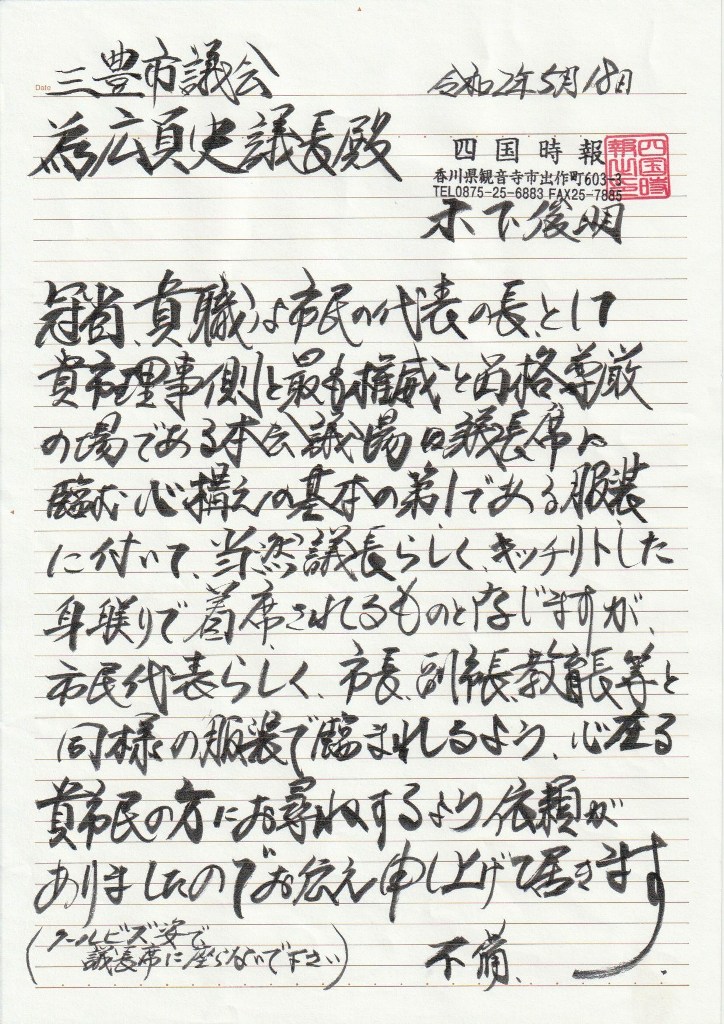 Date
三豊市議会
令和2年5月18日
為広員史議長殿
四国時報
四国時報社
香川県観音寺市出作町603-3
TEL0875-25-6883 FAX25-7885
木下俊明
冠省、貴職は市民の代表の長、として
貴市理事側と最も権威と品格尊厳
の場である本会議場の議長席に
臨む心構えの基本の第1である服装
に付いて、当然議長らしく、キッチリトした
身繕りで着席されるものと存じますが、
市民代表らしく、市長、副市長、教育長等と
同様の服装で臨まれるよう、心在る
貴市民の方にお尋ねするよう依頼が
ありましたのでお伝え申し上げて居きます
(クールビズ姿で
議長席に座らないで下さい)
不備、